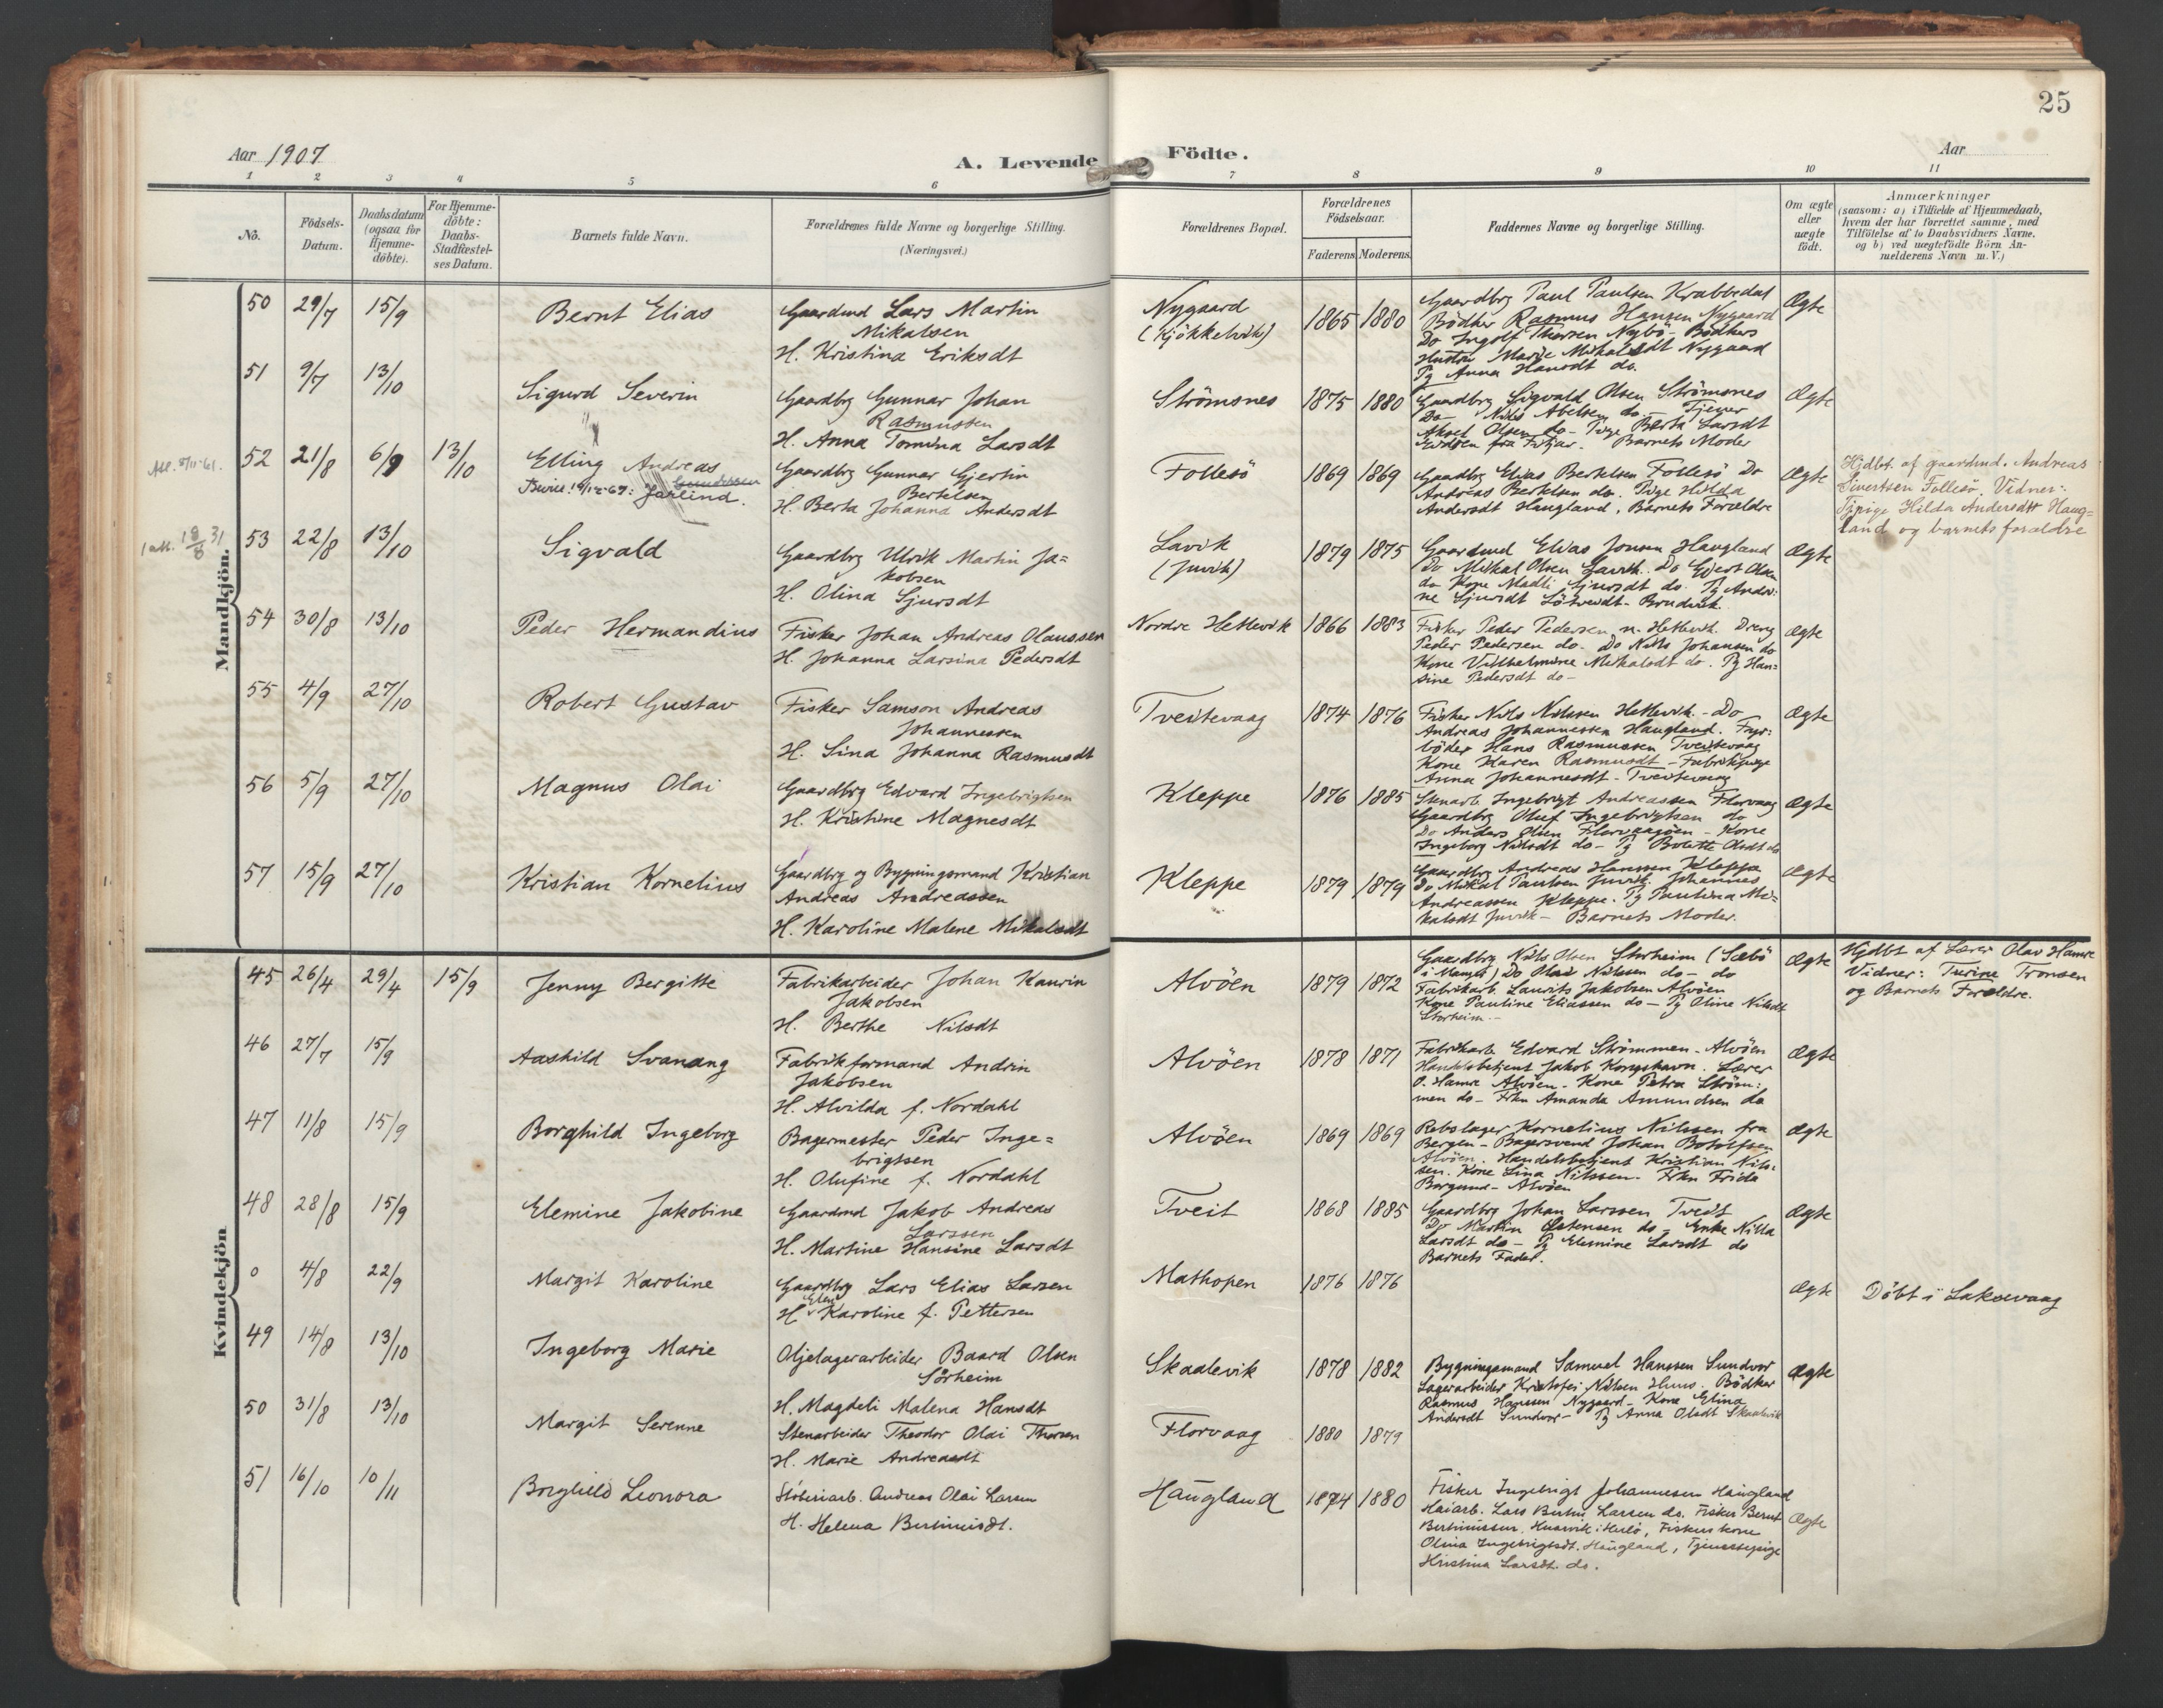 25
Aar 1907
A. Levende Födte.
Aar
1 2 3 4 5 6 7 8 9 10 11
No.
Födsels-Datum.
Daabsdatum (ogsaa for Hjemme-döbte).
For Hjemme-döbte: Daabs-Stadfæstel-ses Datum.
Barnets fulde Navn.
Forældrenes fulde Navne og borgerlige Stilling.
(Næringsvei.)
Forældrenes Bopæl.
Forældrenes Födselsaar.
Faderens Moderens
Faddernes Navne og borgerlige Stilling.
Om ægte eller uægte födt.
Anmærkninger
(saasom: a) i Tilfælde af Hjemmedaab,
hvem der har forrettet samme, med
Tilföielse af to Daabsvidners Navne,
og b) ved uægtefödte Börn An-
melderens Navn m.V.)
Mandkjön.
50 29/7 15/9 Bernt Elias
Gaardmd Lars Martin
Mikalsen
H. Kristina Eriksdt
Nygaard
(Kjökkelvik)
1865 1880
Gaardbrg Paul Paulsen Krabbedal
Bödker Rasmus Hansen Nygaard
Do Ingolf Thorsen Nybö - Bödkers
Hustru Marie Mikalsdt Nygaard
Pg Anna Hansdt do.
Ægte
51 9/7 13/10 Sigurd Severin
Gaardbrg Gunnar Johan
Rasmussen
H. Anna Tomina Larsdt
Strömsnes
1875 1880
Gaardbrg Sigvald Olsen Strömsnes
Do Nils Abelsen do. Tjener
Aksel Olsen do - Pige Berta Larsdt
fra Fitjar. Barnets Moder
Ægte
52 21/8 6/9 13/10 Elling Andreas
Gundersen
Jarlind.
Gaardbrg Gunnar Gjertin
Bertelsen
H. Berta Johanna Andersdt
Follesö
1869 1869
Gaardbrg Elias Bertelsen Follesö Do
Andreas Bertelsen do. Pige Hilda
Andersdt Haugland, Barnets Forældre
Ægte
Hjdbt. af gaardmd. Andreas
Sivertsen Follesö. Vidner:
Tjpige Hilda Andersdtr Haug=
land og barnets forældre
53 22/8 13/10 Sigvald
Gaardbrg Ulrik Martin Ja=
kobsen
H. Olina Sjursdt
Lavik
(Juvik)
1879 1875
Gaardmd Elias Jonsen Haugland
Do Mikal Olsen Lavik. Do Gjert Olsen
do Kone Madli Sjursdt do Pg Andri=
ne Sjursdt
Ægte
54 30/8 13/10 Peder Hermandius
Fisker Johan Andreas Olaussen
H. Johanna Larsina Pedersdt
Nordre Hetlevik
1866 1883
Fisker Peder Pedersen n. Hetlevik. Dreng
Peder Pedersen do. Do Nils Johansen do
Kone Villhelmine Mikalsdt do. Pg Han=
sine Pedersdt do -
Ægte
55 4/9 27/10 Robert Gustav
Fisker Samson Andreas
Johannessen
H. Sina Johanna Rasmusdt
Tveitevaag
1874 1876
Fisker Nils Nilssen Hetlevik. - Do
Andreas Johannessen Haugland. Fyr=
böder Hans Rasmussen Tveitevaag
Kone Karen Rasmusdt - Fabrikpige
Anna Johannesdt - Tveitevaag
Ægte
56 5/9 27/10 Magnus Olai
Gaardbrg Edvard Ingebrigtsen
H. Kristine Magnesdt
Kleppe
1876 1885
Stenarb. Ingebrigt Andreassen Florvaag
Gaardbrg Oluf Ingebrigtsen do
Do Anders Olsen Florvaagöen - Kone
Ingeborg Nilsdt do - Pg Bolette Olsdt do
Ægte
57 15/9 27/10 Kristian Kornelius
Gaardbrg og Bygningsmand Kristian
Andreas Andreassen
H. Karoline Malene Mikalsdt
Kleppe
1879 1879
Gaardbrg Andreas Hanssen Kleppe
Do Mikal Paulsen Juvik. Johannes
Andreassen Kleppe. Pg Paulina Mi=
kalsdt Juvik - Barnets Moder.
Ægte
Kvindekjön
45 26/4 29/4 15/9 Jenny Bergitte
Fabrikarbeider Johan Kaurin
Jakobsen
H. Berthe Nilsdt
Alvöen
1879 1872
Gaardbrg Nils Olsen Storheim (Sæbö
i Manger) Do Olai Nilssen do - do
Fabrikarb Laurits Jakobsen Alvöen
Kone Pauline Eliassen do - Pg Oline Nilsdt
Storheim.-
Ægte
Hjdbt af Lærer Olav Hamre
Vidner: Turine Tronsen
og Barnets Forældre.
46 27/7 15/9 Aashild Svanaug
Fabrikformand Andrin
Jakobsen
H. Alvilda f. Nordahl
Alvöen
1878 1871
Fabrikarb Edvard Strömmen - Alvöen
Handelsbetjent Jakob Kongshavn. Lærer
O. Hamre Alvöen - Kone Petra Ström=
men do - Frkn Amanda Amundsen do
Ægte
47 11/8 15/9 Borghild Ingeborg
Bagermester Peder Inge=
brigtsen
H. Olufine f. Nordahl
Alvöen
1869 1869
Rebslager Kornelius Nilssen fra
Bergen - Bagersvend Johan Botolfsen
Alvöen. Handelsbetjent Kristian Nils=
sen. Kone Lina Nilssen. Frkn Frida
Borgund - Alvöen
Ægte
48 28/8 15/9 Elemine Jakobine
Gaardmd Jakob Andreas
Larssen
H. Martine Hansine Larsdt
Tveit
1868 1885
Gaardbrg Johan Larssen Tveit
Do Martin Østensen do - Enke Nilla
Larsdt do - Pg Elemine Larsdt do
Barnets Fader.
Ægte
0 4/8 22/9 Margit Karoline
Gaardbrg Lars Elias Larsen
H. Elen Karoline f. Pettersen
Mathopen
1876 1876
Ægte
Döbt i Laksevaag
49 14/8 13/10 Ingeborg Marie
Oljelagerarbeider Baard Olsen
Sörheim
H. Magdeli Malena Hansdt
Skaalevik
1878 1882
Bygningsmand Samuel Hanssen Sundvor
Lagerarbeider Kristofer Nilsen Huus. Bödker
Rasmus Hanssen Nygaard - Kone Elina
Andersdt Sundvor - Pg Anna Olsdt Skaalevik
Ægte
50 31/8 13/10 Margit Serenne
Stenarbeider Theodor Olai Thorsen
H. Marie Andreasdt
Florvaag
1880 1879
51 16/10 10/11 Borghild Leonora
Andreas Olai Larsen
H. Helena Bertinusdt.
Haugland
1874 1880
Fisker Ingebrigt Johannesen Haugland
Lars Bertin Larsen do. Fisker Bernt
Bertinussen, Husevik i Herlö, Fiskers kone
Olina Ingebrigtsdt. Haugland, Tjenestepige
Kristina Larsdt. do.
Ægte